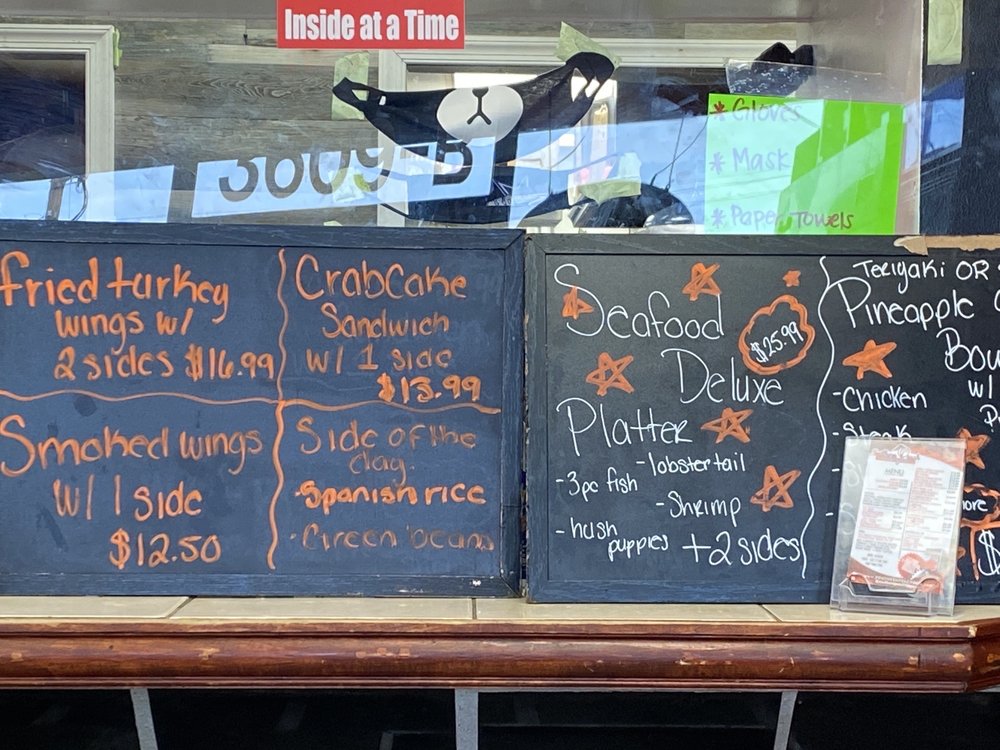 Inside at a Time
3609-B
* Gloves
* Mask
* Paper Towels
fried turkey
wings w/
2 sides $16.99
CrabCake
Sandwich
w/ 1 side
$13.99
Smoked wings
w/ 1 side
$12.50
Side of the
day
·Spanish rice
·Green beans
Seafood
$25.99
Deluxe
Platter
-lobster tail
-3pc fish
-Shrimp
-hush
puppies
+2 sides
Teriyaki OR
Pineapple
Bow
w/
-Chicken
-Steak
MENU